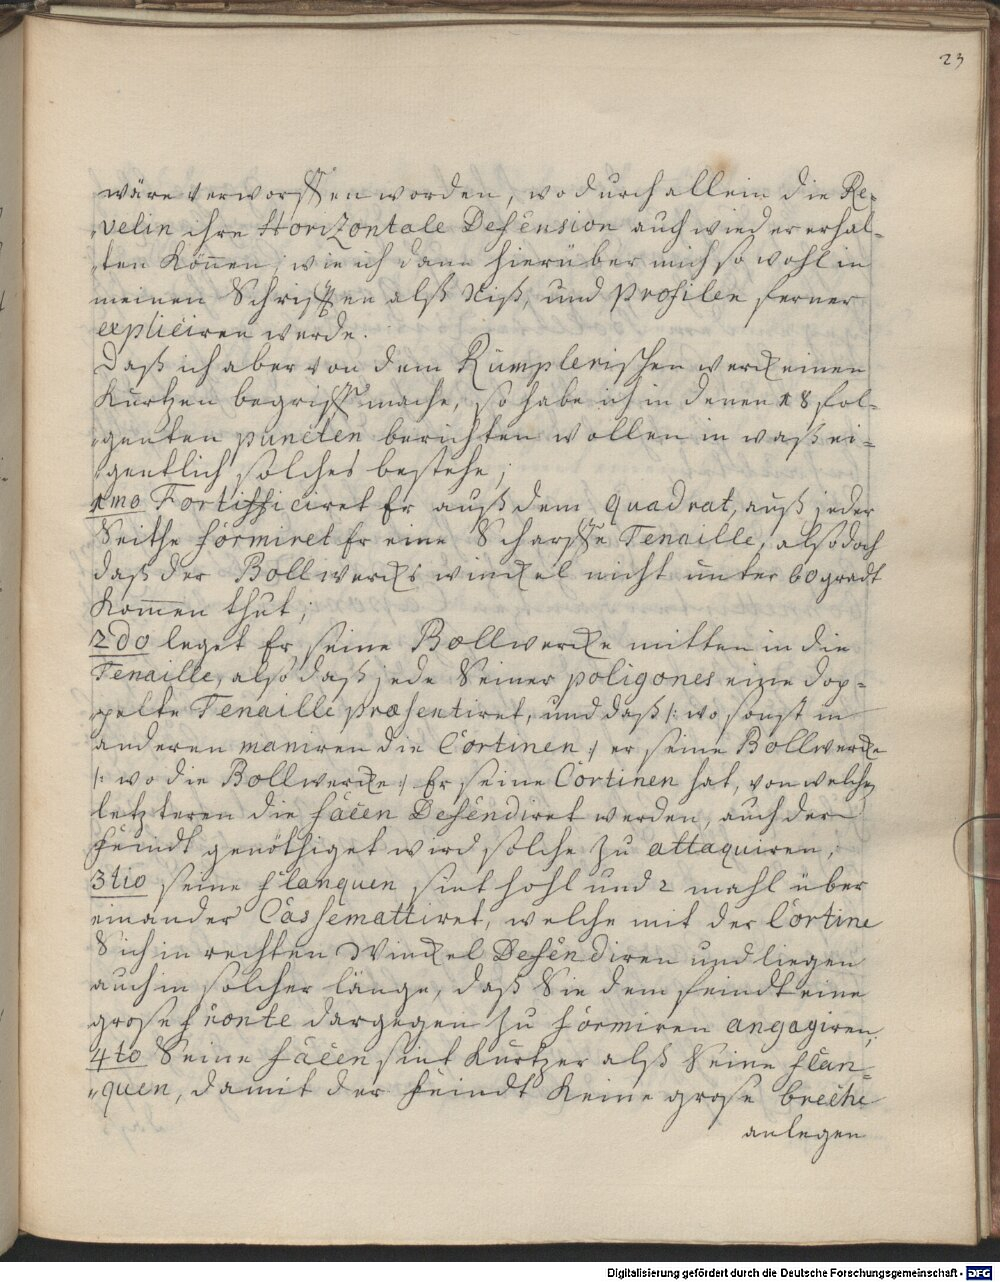 23
wäre verworffen worden, wodurch allein die Re-
velin ihre Horizontale Defension auch wieder erhal-
ten Können; wie ich dann hierüber mich so wohl in
meinen Schrifften alß Riß, und Profilen ferner
expliciren werde.
Daß ich aber von dem Rümplerischen werck einen
Kurtzen begriff mache, so habe ich in denen 18 fol-
genten puncten berichten wollen in waß ei-
gentlich solches bestehe;
1mo Fortifficiret Er auß dem quadrat, auß jeder
Seithe formiret Er eine Scharffe Tenaille, also doch
daß der Bollwercks winckel nicht unter 60 gradt
Kom̅en thut;
2do leget Er seine Bollwercke mitten in die
Tenaille, also daß jede Seiner poligones eine dop-
pelte Tenaille præsentiret, und daß /: wo sonst in
anderen maniren die Cortinen :/ er seine Bollwercke
/: wo die Bollwercke :/ Er seine Cortinen hat, von welchen
letzteren die facen Defendiret werden, auch der
feindt genöthiget wird solche zu attaquiren;
3tio seine flanquen sint hohl und 2 mahl über
einander Cassemattiret, welche mit der Cortine
Sich in rechten Winckel Defendiren und liegen
auch in solcher länge, daß Sie dem feindt eine
grose fronte dargegen zu formiren angagiren;
4to Seine facen sint Kurtzer alß Seine flan-
quen, damit der feindt Keine grose breche
anlegen
Digitalisierung gefördert durch die Deutsche Forschungsgemeinschaft - DFG